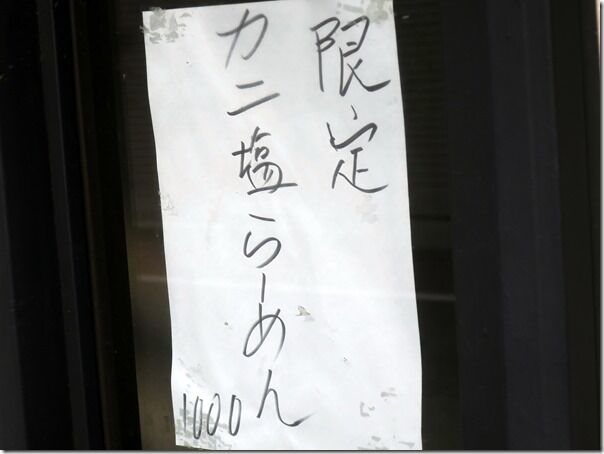 限定
カニ塩らーめん
1000